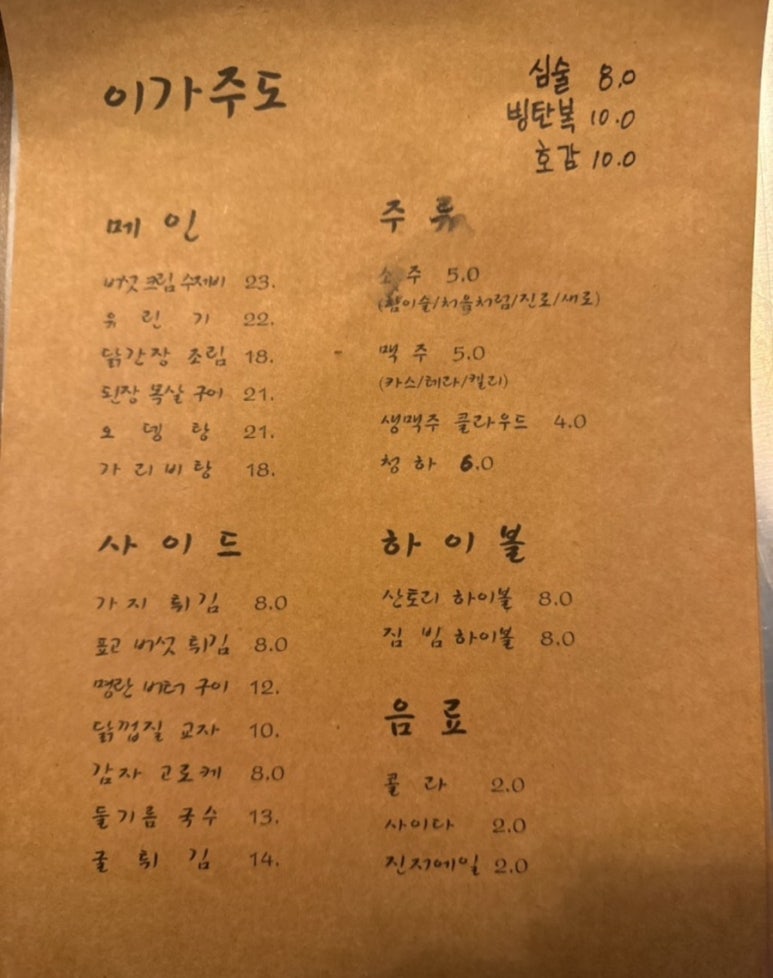 이가주도
심술 8.0
빙탄복 10.0
호감 10.0
메인
버섯크림수제비 23.
유린기 22.
닭간장 조림 18.
된장 목살 구이 21.
오뎅탕 21.
가리비탕 18.
사이드
가지 튀김 8.0
표고 버섯 튀김 8.0
명란 버터 구이 12.
닭껍질 교자 10.
감자 고로케 8.0
들기름 국수 13.
굴튀김 14.
주류
소주 5.0
(참이슬/처음처럼/진로/새로)
맥주 5.0
(카스/테라/켈리)
생맥주 클라우드 4.0
청하 6.0
하이볼
산토리 하이볼 8.0
짐빔하이볼 8.0
음료
콜라 2.0
사이다 2.0
진저에일 2.0